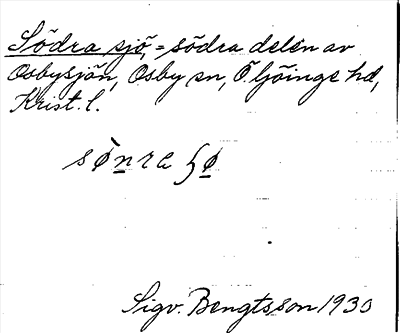 Södra sjö, = södra delen av
Osbysjön, Osby sn, Ö. Göinge hd,
Krist. l.
sø̀nra ʃø
Sigv. Bengtsson 1930